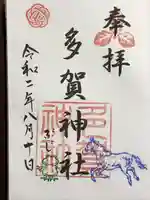 奉拝
多賀神社
令和二年八月十日